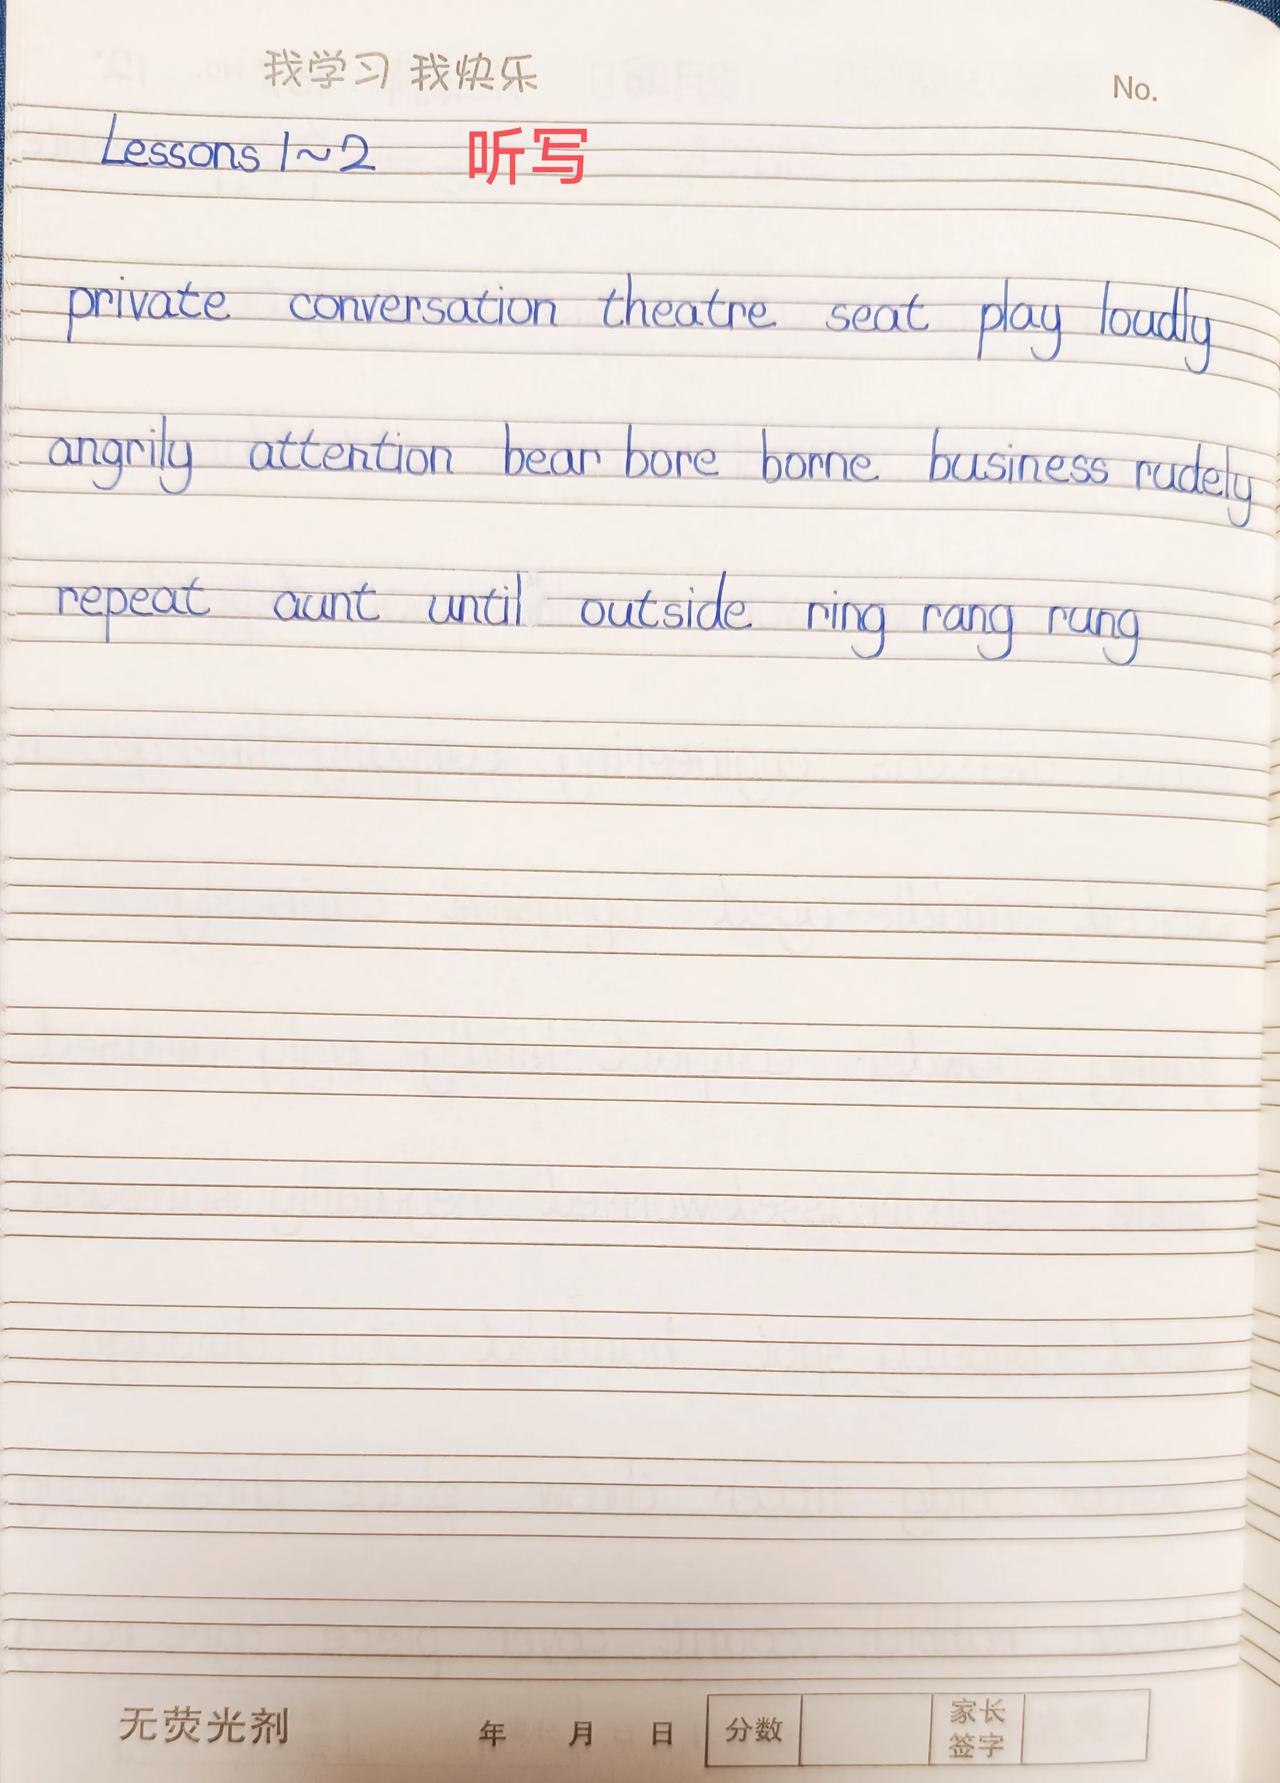 我学习 我快乐 No.
Lessons 1~2 听写
private conversation theatre seat play loudly
angrily attention bear bore borne business rudely
repeat aunt until outside ring rang rung
无荧光剂 年 月 日 分数 家长签字